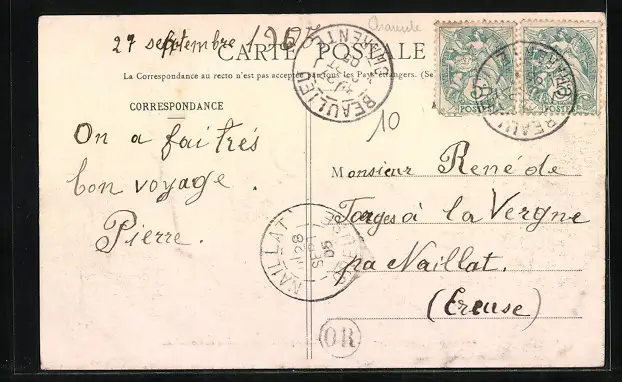 27 septembre 1905
CARTE POSTALE
La Correspondance au recto n'est pas acceptée par tous les Pays étrangers. (Se
CORRESPONDANCE
On a fait très
bon voyage.
Pierre.
10
Monsieur René de
à la Vergne
par Naillat.
(Creuse)
BEAULIEU
CHARENTE
BEAULIEU
CHARENTE
POSTES
POSTES
NAILLAT
CREUSE
28
SEPT
05
OR